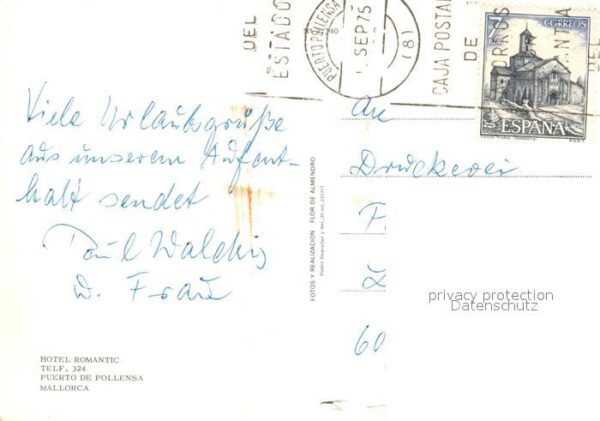 DEL
ESTADO
PUERTO POLLENSA
SEP 75
(8)
CAJA POSTAL
DE
DEL
7
CORREOS
ESPAÑA
Viele Urlaubsgrüße
aus unserem Aufent-
halt sendet
Paul
u. Frau
An
Druckerei
60
FOTOS Y REALIZACION FLOR DE ALMENDRO
privacy protection
Datenschutz
HOTEL ROMANTIC
TELF. 324
PUERTO DE POLLENSA
MALLORCA